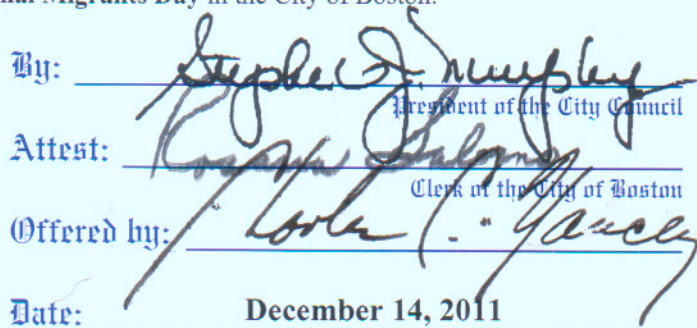 nal Migrants Day in the City of Boston.
By: Stephen J. Murphy
President of the City Council
Attest: Rosaria Salerno
Clerk of the City of Boston
Offered by: Charles C. Yancey
Date: December 14, 2011